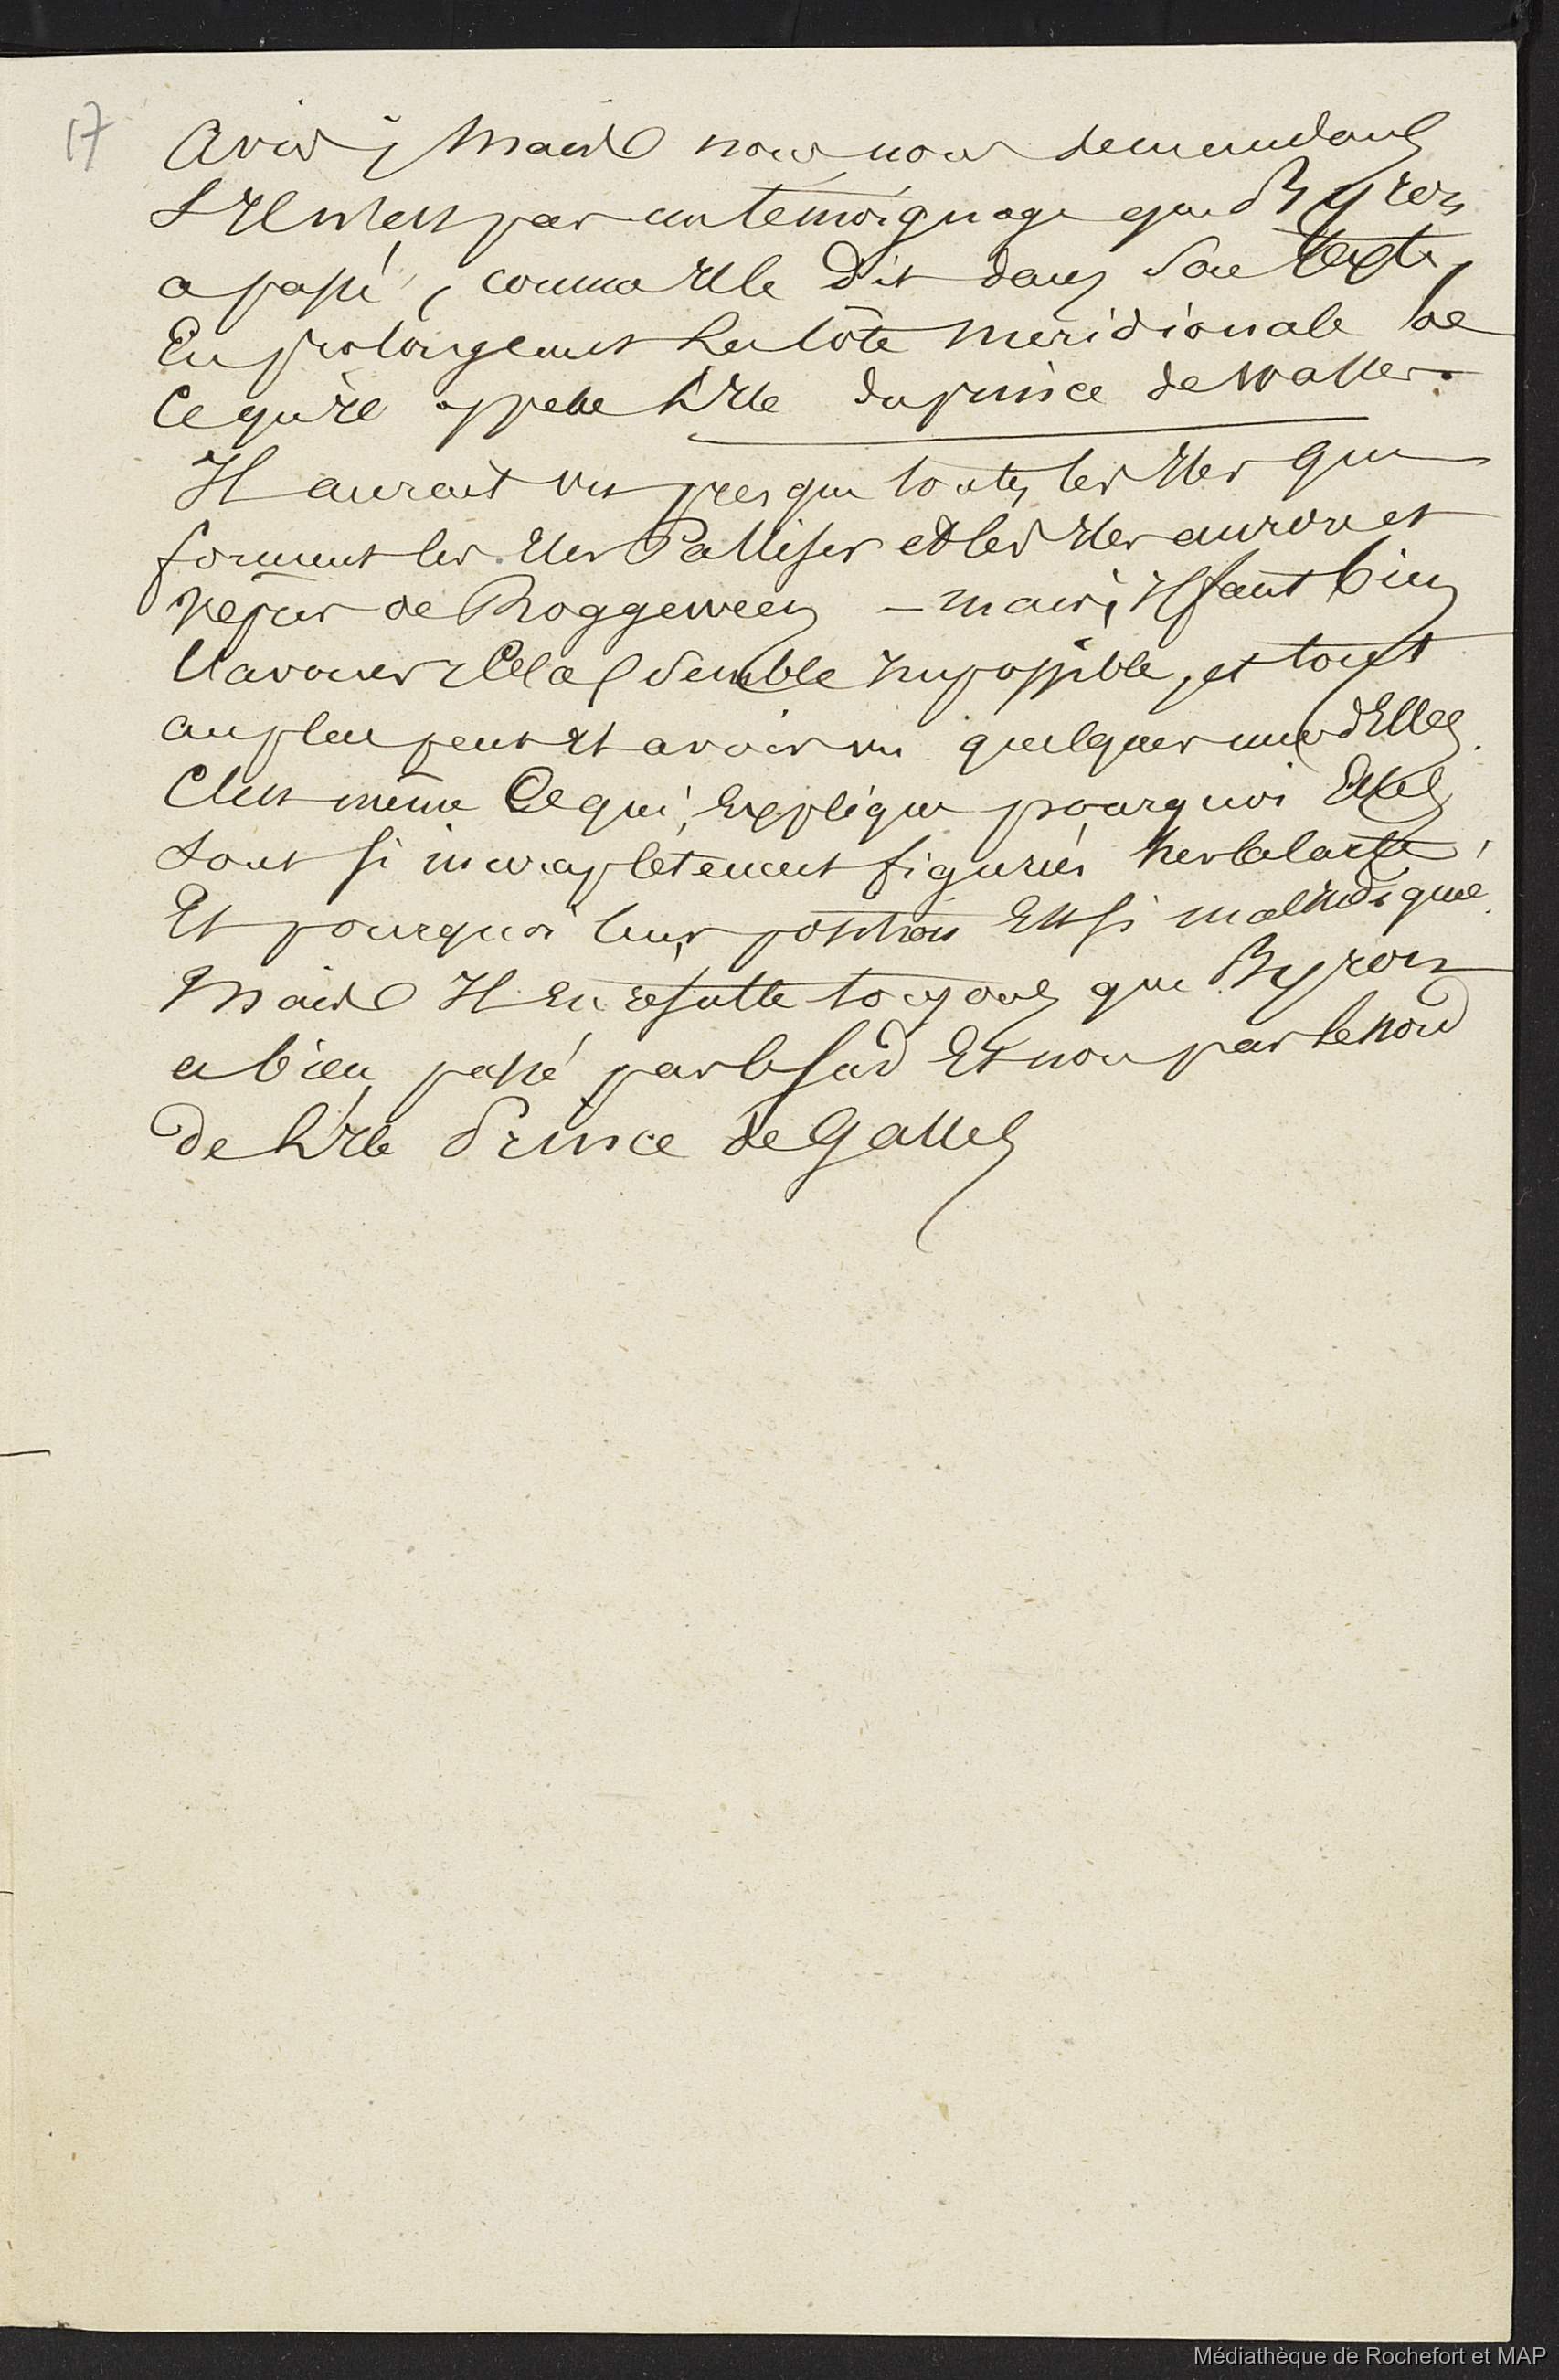 17
Avis ; Mais nous nous demandons
S'Il n'est pas un témoignage que Byron
a passé, comme Il le Dit dans Son texte,
En prolongeant La Côte Meridionale de
Ce qu'Il appelle L'Ile du prince de Walles.
Il aurait vu presque toutes les Iles qui
forment les Iles Palliser et les Iles aurore et
Vesper de Roggeween — mais, Il faut bien
l'avouer, Cela Semble Impossible, et tout
au plus peut-Il avoir vu quelques unes d'Elles.
C'est même Ce qui Explique pourquoi Elles
Sont si incompletement figurées sur la carte,
Et pourquoi leur position Est si mal Indiquée.
Mais Il En résulte toujours que Byron
a bien passé par le Sud Et non par le nord
de L'Ile Prince de Galles
Médiathèque de Rochefort et MAP